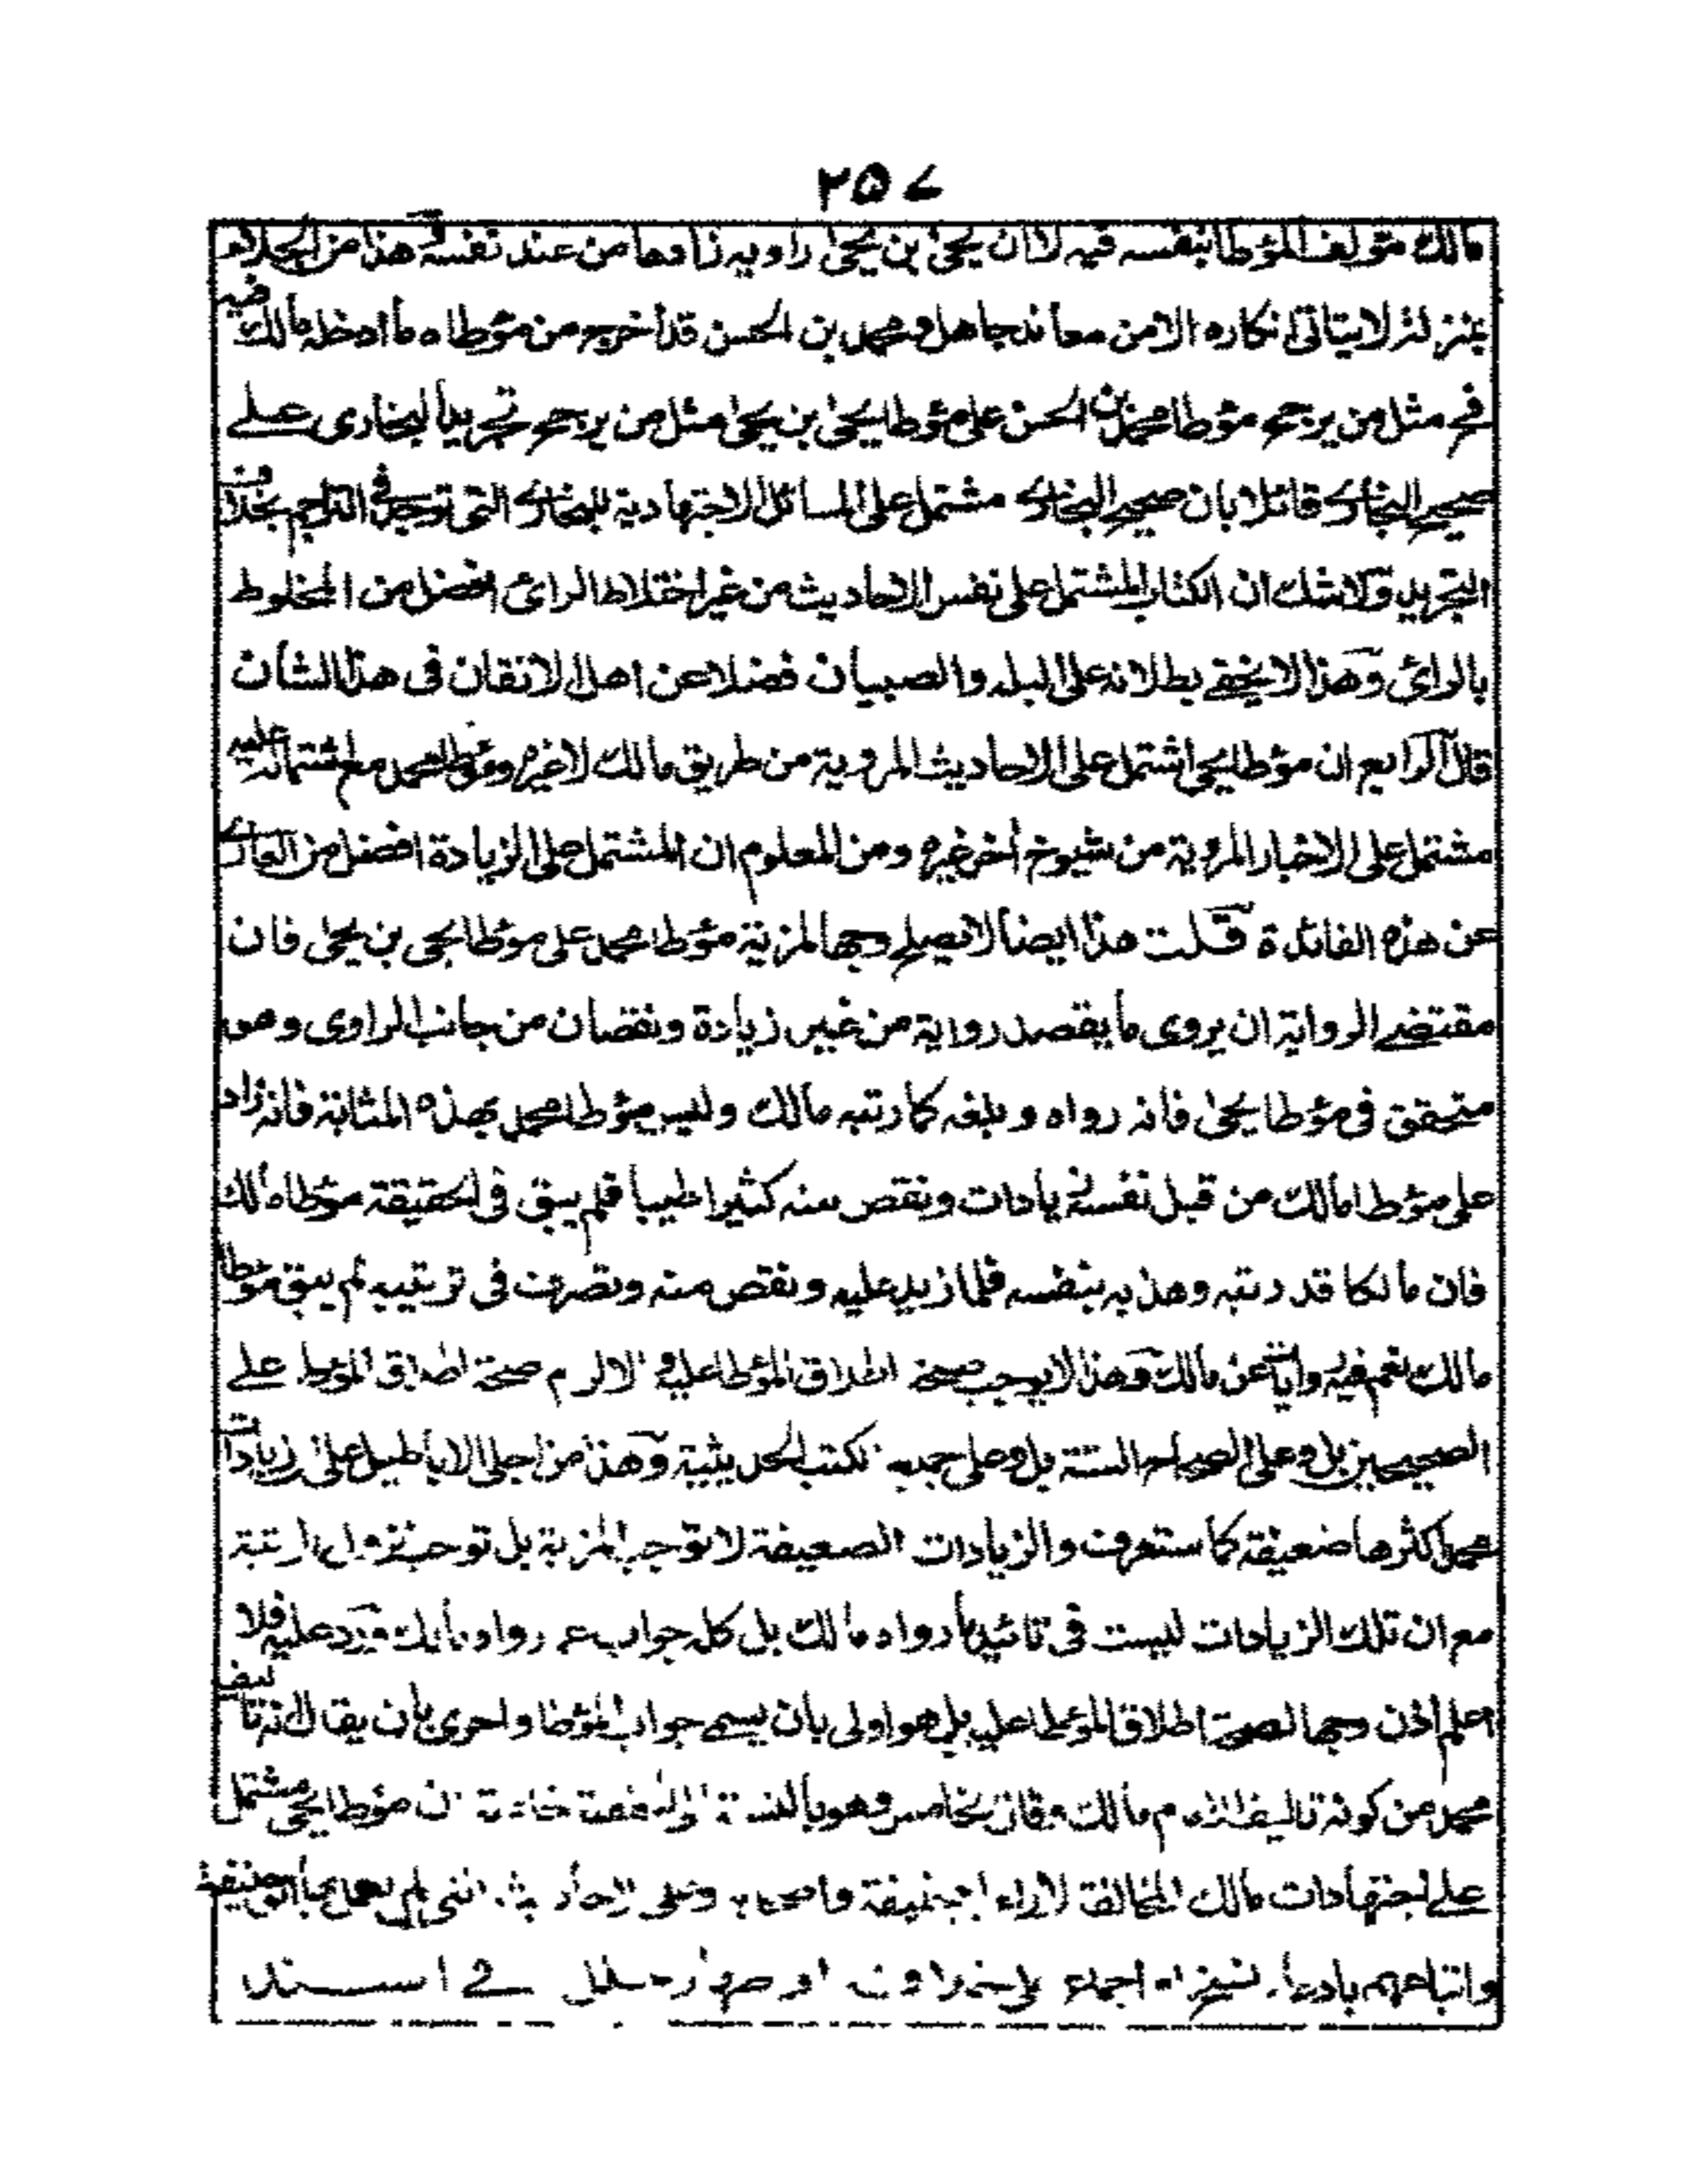 ٢٥٧
مالك مؤلف المؤطا بنفسه فيه لا ان يحيىٰ بن يحيىٰ راويه زادها من عند نفسه وهذا من الجلاء
بمنزلة لا يتاتى انكاره الا من معاند جاهل ومحمد بن الحسن قد أخرج من مؤطاه ما أدخله مالك فيه
فے مثل من يرجح مؤطا محمد بن الحسن على مؤطا يحيىٰ بن يحيىٰ مثل من يرجح تجريد البخارى علے
صحيح البخارے قائلا بان صحيح البخارے مشتمل على المسائل الاجتهادية للبخارے التى توجد فى التراجم بخلاف
التجريد ولا شك ان الكتاب المشتمل على نفس الاحاديث من غير اختلاط الرائى افضل من المخلوط
بالرائى وهذا لا يخفے بطلانه على البله والصبيان فضلا عن اهل الاتقان فى هذا الشان
قال الرابع ان مؤطا يحيى اشتمل على الاحاديث المروية من طريق مالك لا غيره ومؤطا محمد مع اشتماله عليه
مشتمل على الاخبار المروية من شيوخ أخر غيره ومن المعلوم ان المشتمل على الزيادة افضل من العارے
عن هذه الفائدة قلت هذا ايضا لا يصلح وجها لمزية مؤطا محمد على مؤطا يحيى بن يحيىٰ فان
مقتضے الرواية ان يروى ما يقصد رواية من غير زيادة ونقصان من جانب الراوى وهو
متحقق فى مؤطا يحيىٰ فانه رواه وبلغه كما رتبه مالك وليس مؤطا محمد بهذه المثابة فانه زاد
على مؤطا مالك من قبل نفسه زيادات ونقص منه كثيرا طيبا فلم يبق فى الحقيقة مؤطا مالك
فان مالكا قد رتبه وهذبه بنفسه فلما زيد عليه ونقص منه وتصرف فى ترتيبه لم يبق مؤطا
مالك نعم فيه روايات عن مالك وهذا لا يوجب صحة اطلاق المؤطا عليه والا لزم صحة اطلاق المؤطا علے
الصحيحين بل وعلى الصحاح الستة بل وعلى جميع الكتب الحديثية وهذا من اجلى الاباطيل على ان زيادات
محمد اكثرها ضعيفة كما ستعرف والزيادات الضعيفة لا توجب المزية بل توجب نزول الرتبة
مع ان تلك الزيادات ليست فى تائيد ما رواه مالك بل كله جواب عما رواه مالك ورد عليه فلا
اعلم اذن وجها لصحة اطلاق المؤطا عليه بل هو اولى بان يسمى جواب المؤطا واحرى بأن يقال انه تاليف
محمد من كونه تاليف الامام مالك وقال الخامس وهو بالنسبة الى الحنفية خاصة ان مؤطا يحيى مشتمل
علے اجتهادات مالك المخالفة لاراء ابى حنيفة واصحابه وعلى الاحاديث التى لم يعمل بها ابو حنيفة
واتباعه بادعاء نسخ او اجماع على خلافه او اظهار خلل فے السند